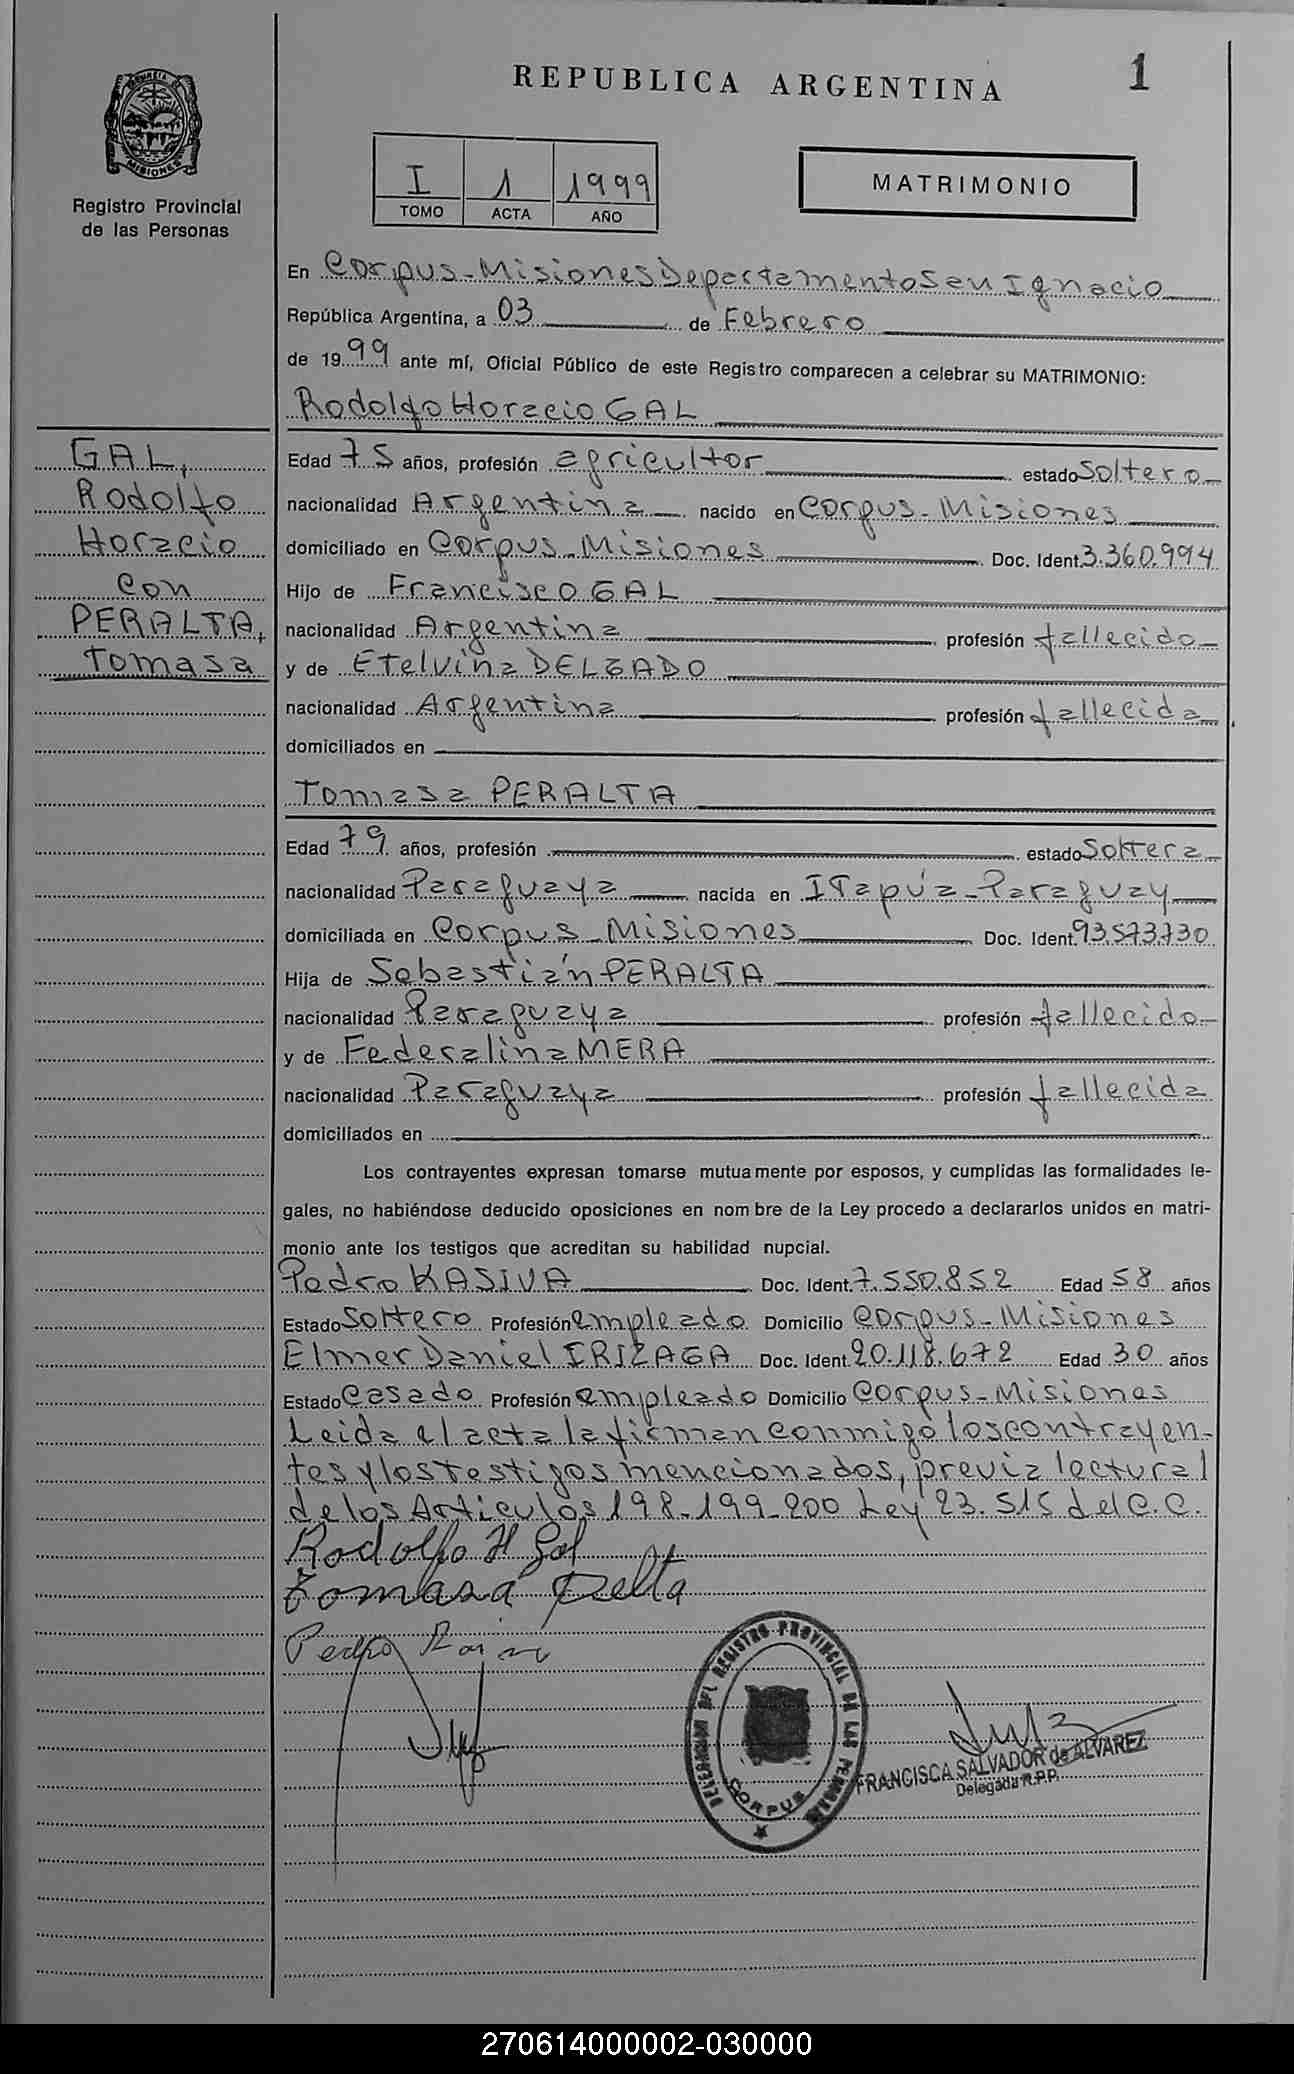 REPUBLICA ARGENTINA
1
MISIONES
Registro Provincial
de las Personas
I 1 1999
TOMO ACTA AÑO
MATRIMONIO
En Corpus-Misiones Departamento San Ignacio
República Argentina, a 03 de Febrero
de 1999 ante mí, Oficial Público de este Registro comparecen a celebrar su MATRIMONIO:
Rodolfo Horacio GAL
GAL,
Rodolfo
Horacio
con
PERALTA,
Tomasa
Edad 75 años, profesión agricultor estado Soltero
nacionalidad Argentina nacido en Corpus-Misiones
domiciliado en Corpus-Misiones Doc. Ident. 3.360.994
Hijo de Francisco GAL
nacionalidad Argentina profesión fallecido
y de Etelvina DELGADO
nacionalidad Argentina profesión fallecida
domiciliados en
Tomasa PERALTA
Edad 79 años, profesión estado Soltera
nacionalidad Paraguaya nacida en ITapúa-Paraguay
domiciliada en Corpus-Misiones Doc. Ident. 93.573.730
Hija de Sebastián PERALTA
nacionalidad Paraguaya profesión fallecido
y de Federalina MERA
nacionalidad Paraguaya profesión fallecida
domiciliados en
Los contrayentes expresan tomarse mutuamente por esposos, y cumplidas las formalidades le-
gales, no habiéndose deducido oposiciones en nombre de la Ley procedo a declararlos unidos en matri-
monio ante los testigos que acreditan su habilidad nupcial.
Pedro KASIVA Doc. Ident. 7.550.852 Edad 58 años
Estado Soltero Profesión empleado Domicilio Corpus-Misiones
Elmer Daniel IRIZAGA Doc. Ident. 20.118.672 Edad 30 años
Estado Casado Profesión empleado Domicilio Corpus-Misiones
Leida el acta la firman conmigo los contrayen-
tes y los testigos mencionados, previa lectura l
de los Articulos 198-199-200 Ley 23.515 del C.C.
Rodolfo H Gal
Tomasa
Pedro
DELEGACION DEL REGISTRO PROVINCIAL DE LAS PERSONAS
CORPUS
FRANCISCA SALVADOR de ALVAREZ
Delegada R.P.P.
270614000002-030000